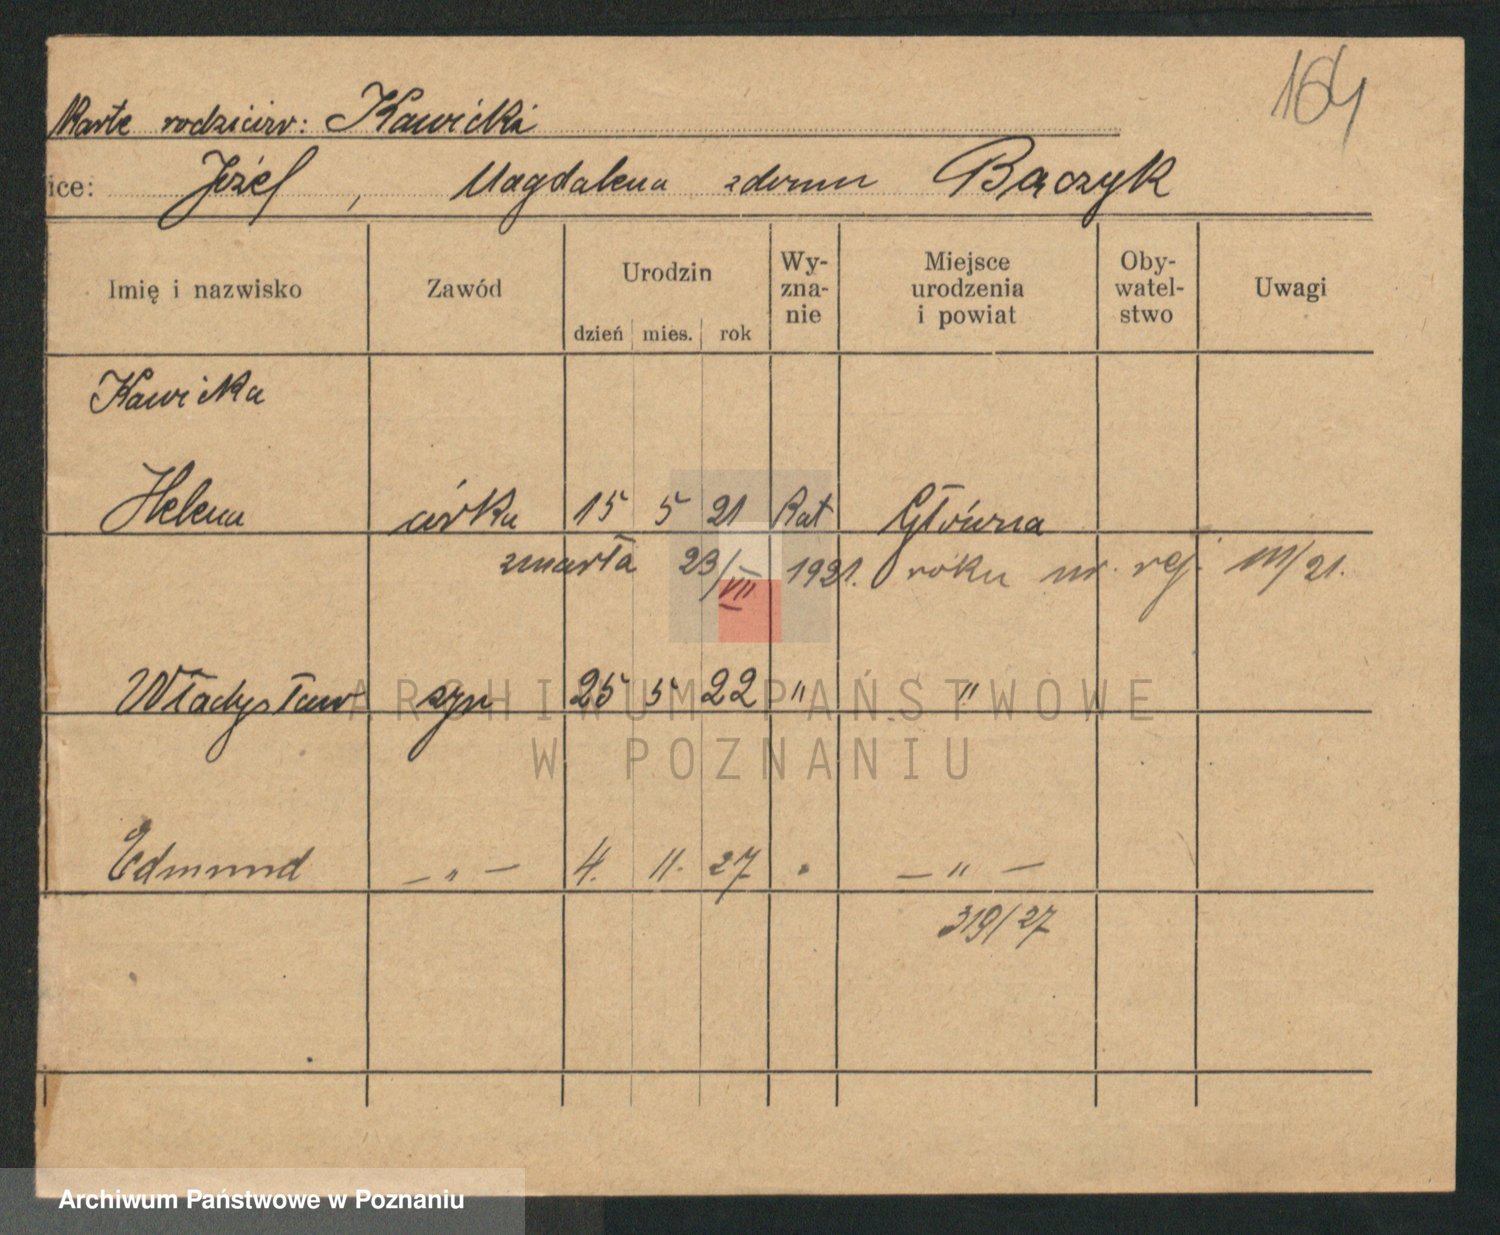 164
Karte rodziców: Kawicki
ice: Józef, Magdalena zdomu Bączyk
Imię i nazwisko Zawód Urodzin dzień mies. rok Wy-zna-nie Miejsce urodzenia i powiat Oby-watel-stwo Uwagi
Kawicka
Helena córka 15 5 21 Kat Główna
zmarła 23/VII 1921. roku nr. rej. 111/21.
Władysław syn 25 5 22 " "
ARCHIWUM PAŃSTWOWE
W POZNANIU
Edmund — " — 4. 11. 27 " — " —
319/27
Archiwum Państwowe w Poznaniu